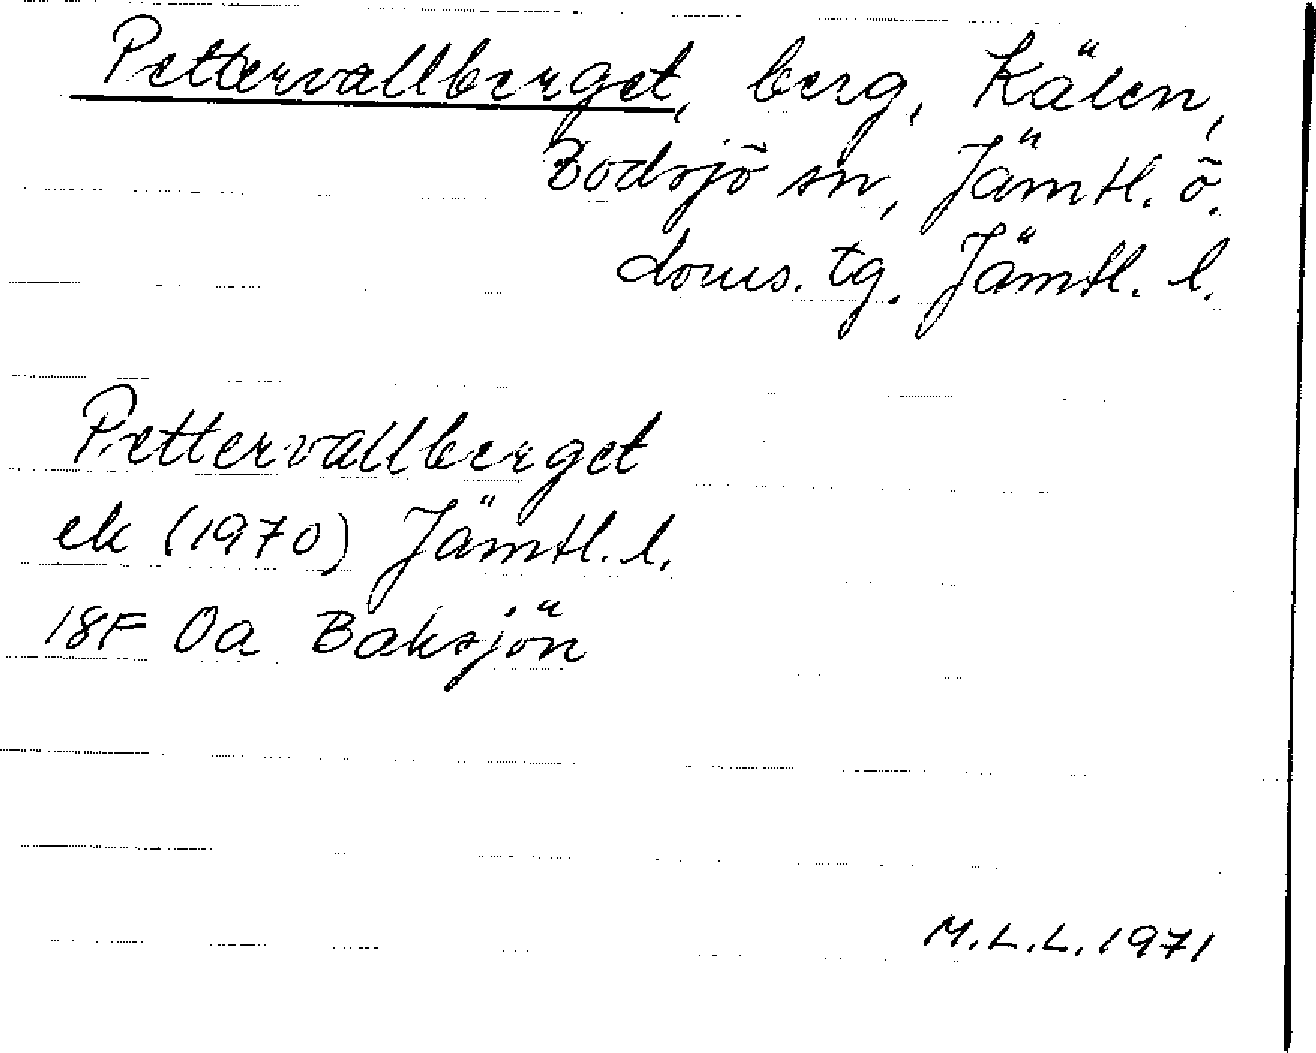 Pettervallberget, berg, Kälen,
Bodsjö sn, Jämtl. ö.
doms. tg. Jämtl. l.
Pettervallberget
ek (1970) Jämtl. l.
18F 0a Baksjön
M.L.L. 1971